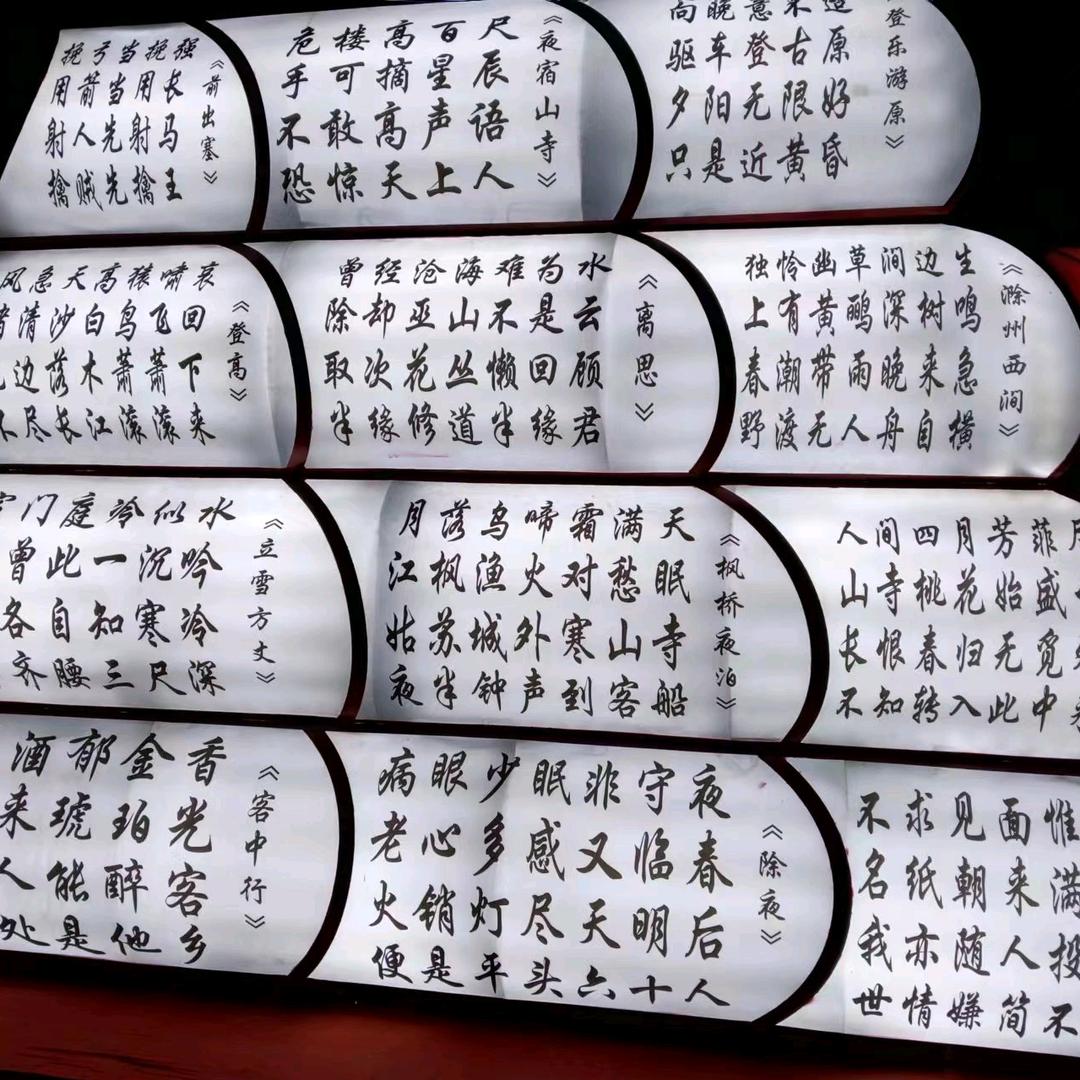 挽弓当挽强
用箭当用长
射人先射马
擒贼先擒王
《前出塞》
危楼高百尺
手可摘星辰
不敢高声语
恐惊天上人
《夜宿山寺》
向晚意不适
驱车登古原
夕阳无限好
只是近黄昏
《登乐游原》
风急天高猿啸哀
清沙白鸟飞回
边落木萧萧下
不尽长江滚滚来
《登高》
曾经沧海难为水
除却巫山不是云
取次花丛懒回顾
半缘修道半缘君
《离思》
独怜幽草涧边生
上有黄鹂深树鸣
春潮带雨晚来急
野渡无人舟自横
《滁州西涧》
门庭冷似水
曾此一沉吟
各自知寒冷
齐腰三尺深
《立雪方丈》
月落乌啼霜满天
江枫渔火对愁眠
姑苏城外寒山寺
夜半钟声到客船
《枫桥夜泊》
人间四月芳菲
山寺桃花始盛
长恨春归无觅
不知转入此中
酒郁金香
来琥珀光
人能醉客
处是他乡
《客中行》
病眼少眠非守夜
老心多感又临春
火销灯尽天明后
便是平头六十人
《除夜》
不求见面惟
名纸朝来满
我亦随人投
世情嫌简不